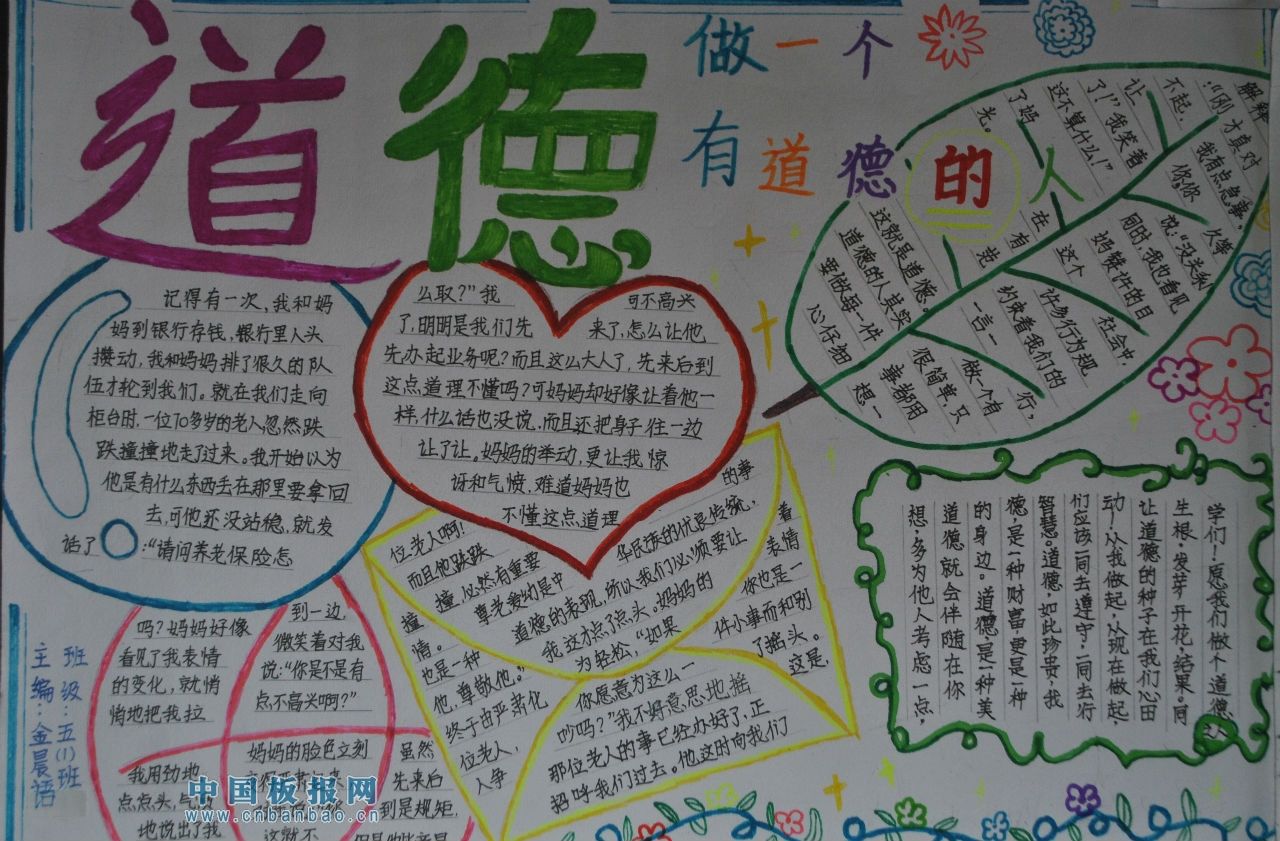 道德
做一个
有道德的人
记得有一次,我和妈
妈到银行存钱,银行里人头
攒动,我和妈妈排了很久的队
伍才轮到我们。就在我们走向
柜台时,一位70多岁的老人忽然跌
跌撞撞地走了过来。我开始以为
他是有什么东西丢在那里要拿回
去,可他还没站稳,就发
话了:“请问养老保险怎
么取?”我
可不高兴
了,明明是我们先
来了,怎么让他
先办起业务呢?而且这么大人了,先来后到
这点道理不懂吗?可妈妈却好像让着他一
样,什么话也没说,而且还把身子往一边
让了让。妈妈的举动,更让我惊
讶和气愤,难道妈妈也
不懂这点道理
吗?妈妈好像
看见了我表情
的变化,就悄
悄地把我拉
到一边,
微笑着对我
说:“你是不是有
点不高兴啊?”
我用劲地
点点头,气
地说出了我
妈妈的脸色立刻
这就不
虽然
先来后
到是规矩,
位老人啊!
而且他跌跌
撞
撞,必然有重要
的事
情。
尊老爱幼是中
华民族的优良传统,
也是一种
道德的表现,所以我们必须要让
着
他,尊敬他。”
我这才点了点头。妈妈的
表情
终于由严肃化
为轻松,“如果
你也是一
位老人,
你愿意为这么一
件小事而和别
人争
吵吗?”我不好意思地摇
了摇头。
那位老人的事已经办好了,正
招呼我们过去。他这时向我们
这是,
解释
:“刚才真对
不起,
我有点急事,
让你
久等
了!”我笑着
说:“没关系,
这不算什么!”
同时,我也看见
了妈妈赞许的目
光。
在这个社会中,
有许多行为规
范约束着我们的
一言一行,
这就是道德。
做个有
道德的人其实
很简单,只
要做每一件
事都用
心仔细
想一
想,多为他人考虑一点,
道德就会伴随在你
的身边。道德,是一种美
德,是一种财富,更是一种
智慧。道德,如此珍贵,我
们应该一同去遵守,一同去行
动!从我做起,从现在做起,
让道德的种子在我们心田
生根,发芽,开花,结果。同
学们!愿我们做个道德之人
班级:五(1)班
主编:金晨语
中国板报网
www.cnbanbao.cn